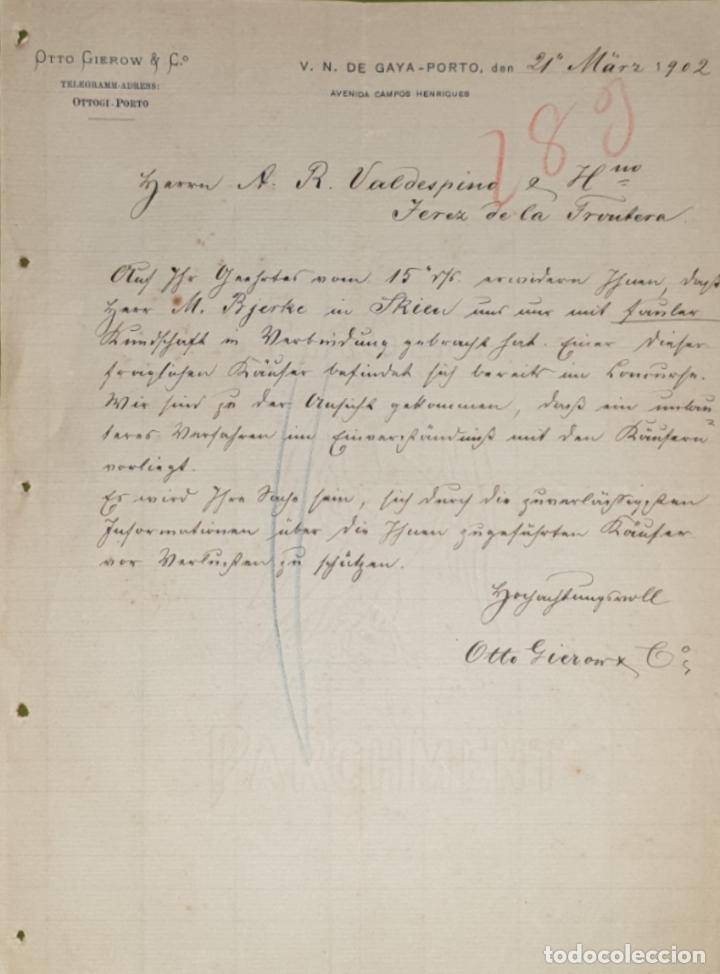 OTTO GIEROW & Cº
TELEGRAMM-ADRESS:
OTTOGI-PORTO
V. N. DE GAYA-PORTO, den 21º März 1902
AVENIDA CAMPOS HENRIQUES
189
Herrn A. R. Valdespino & Hno
Jerez de la Frontera.
Auf Ihr Geehrtes vom 15º d/s. erwidern Ihnen, daß
Herr M. Bjerke in Skien uns nur mit fauler
Kundschaft in Verbindung gebracht hat. Einer dieser
fraglichen Käufer befindet sich bereits im Concurse.
Wir sind zu der Ansicht gekommen, daß ein unlau-
teres Verfahren im Einverständniß mit den Käufern
vorliegt.
Es wird Ihre Sache sein, sich durch die zuverlässigsten
Informationen über die Ihnen zugeführten Käufer
vor Verlusten zu schützen.
Hochachtungsvoll
Otto Gierow & Cº
PARCHMENT
todocoleccion